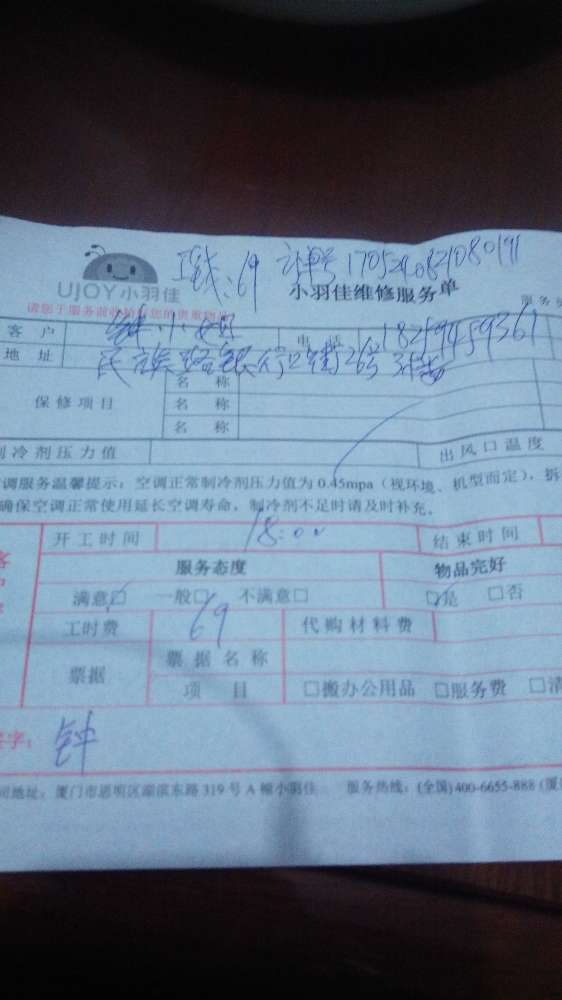 订单号 1705240821080191
69
UJOY小羽佳
小羽佳维修服务单
请您于服务前收拾好您的贵重物品
客 户 钟小姐 电 话 18259459361
地 址 民族路 26号
保修项目 名 称
名 称
名 称
制冷剂压力值 出风口温度
调服务温馨提示：空调正常制冷剂压力值为 0.45mpa（视环境、机型而定），拆
确保空调正常使用延长空调寿命，制冷剂不足时请及时补充。
开工时间 18:00 结束时间
服务态度 物品完好
满意☑ 一般□ 不满意□ ☑是 □否
工时费 69 代购材料费
票据 票据名称
项 目 □搬办公用品 □服务费 □清
字： 钟
司地址：厦门市思明区湖滨东路 319 号 A 幢小羽佳 服务热线：(全国)400-6655-888 (厦